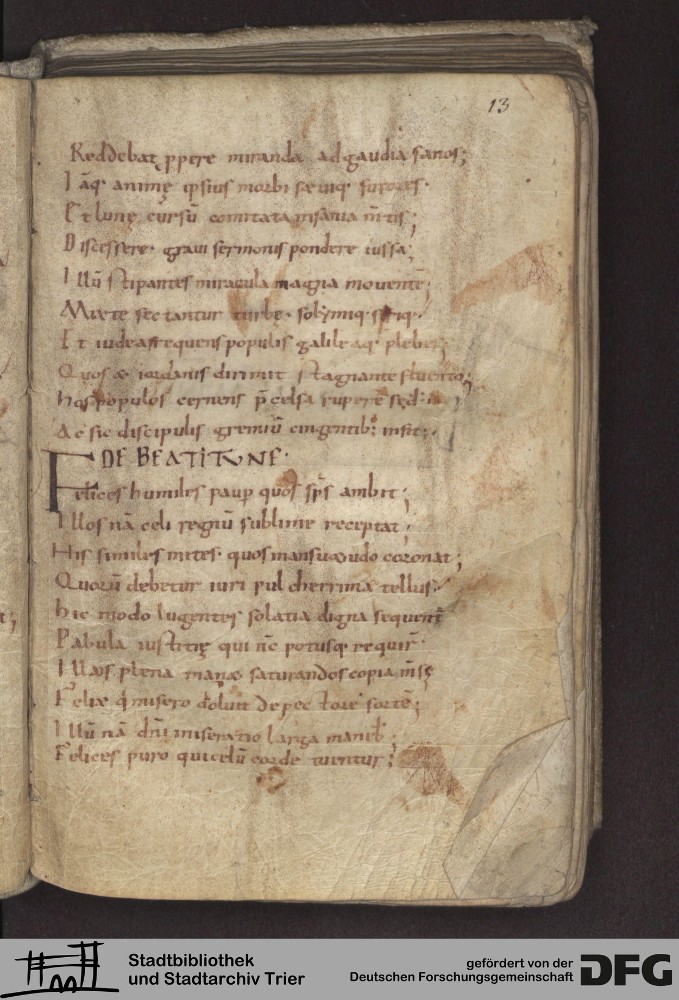 13
Reddebat ꝓpere miranda ad gaudia sanos;
I āq; animę ipsius morbi sęuiq; furores.
Et lunę cursū comitata insania m̄tis;
Discessere. graui sermonis pondere iussa;
Illū stipantes miracula magna mouentē;
Mixtę sectantur turbę. solymiq;
Et iudea frequens populis galileaq; plebes;
Quos & iordanis dirimit stagnante fluento;
hos populos cernens p̄celsa rupe resed
Ac sic discipulis gremiū cingentib; insit;
DE BEATITVNE.
Felices humiles paup quos sp̄s ambit;
Illos nā celi regnū sublime receptat;
His similes mites. quos mansu&udo coronat;
Quorū debetur iuri pulcherrima tellus;
hic modo lugentes solatia digna sequent̄
Pabula iustitię qui nc̄ potusq; requir̄
Illos plena man& saturandos copia m̄sę
Felix q misero doluit de pectore sortē;
Illū nā dn̄i miseratio larga maneb;
Felices puro qui celū corde tuentur;
Stadtbibliothek
und Stadtarchiv Trier
gefördert von der
Deutschen Forschungsgemeinschaft
DFG